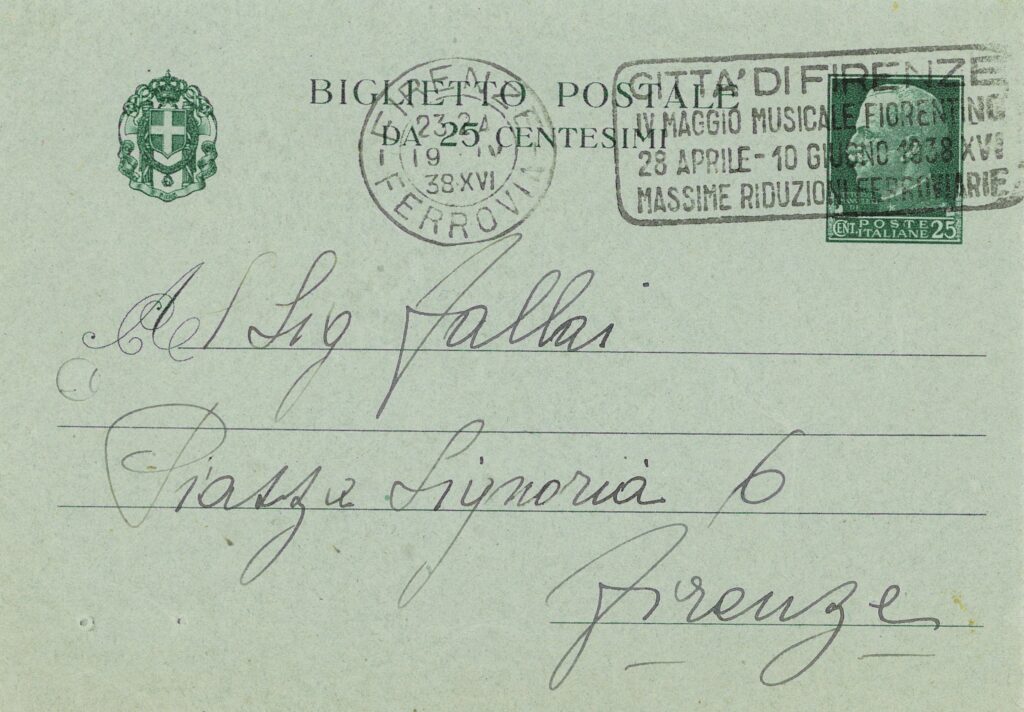 BIGLIETTO POSTALE
DA 25 CENTESIMI
FIRENZE
23-24
19 IV
38·XVI
FERROVIA
CITTA' DI FIRENZE
IV MAGGIO MUSICALE FIORENTINO
28 APRILE - 10 GIUGNO 1938 XVI
MASSIME RIDUZIONI FERROVIARIE
CENT. POSTE ITALIANE 25
Al Sig Fallai
Piazza Signoria 6
Firenze